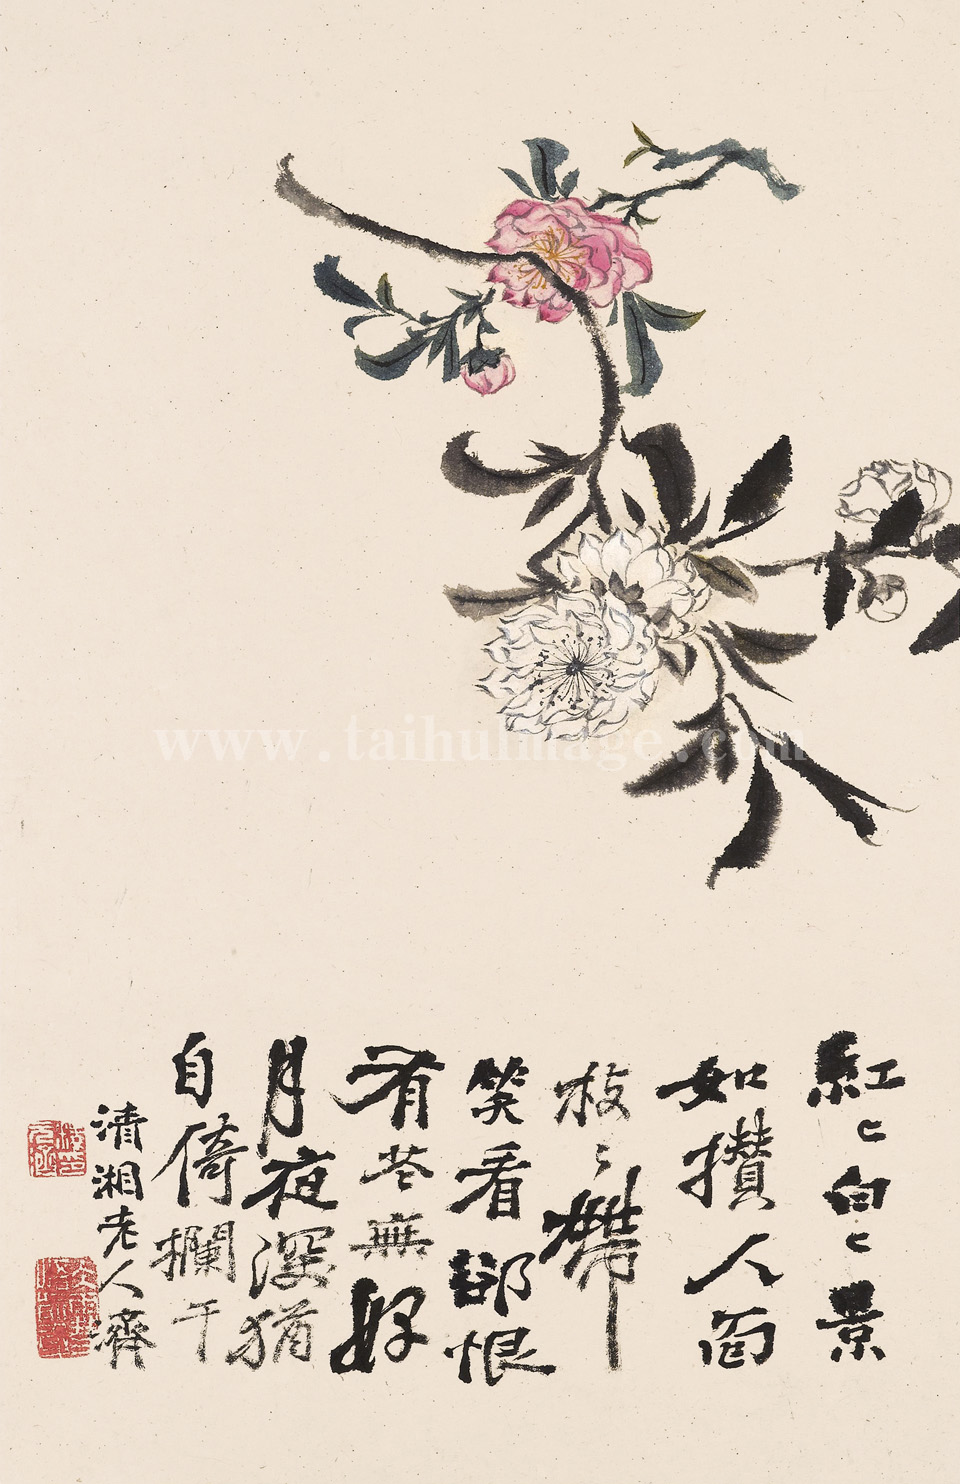 紅〻白〻景
如攢人面
枝〻帶
笑看卻恨
有花無好
月夜深猶
自倚欄干
清湘老人濟
www.taihuimage.com